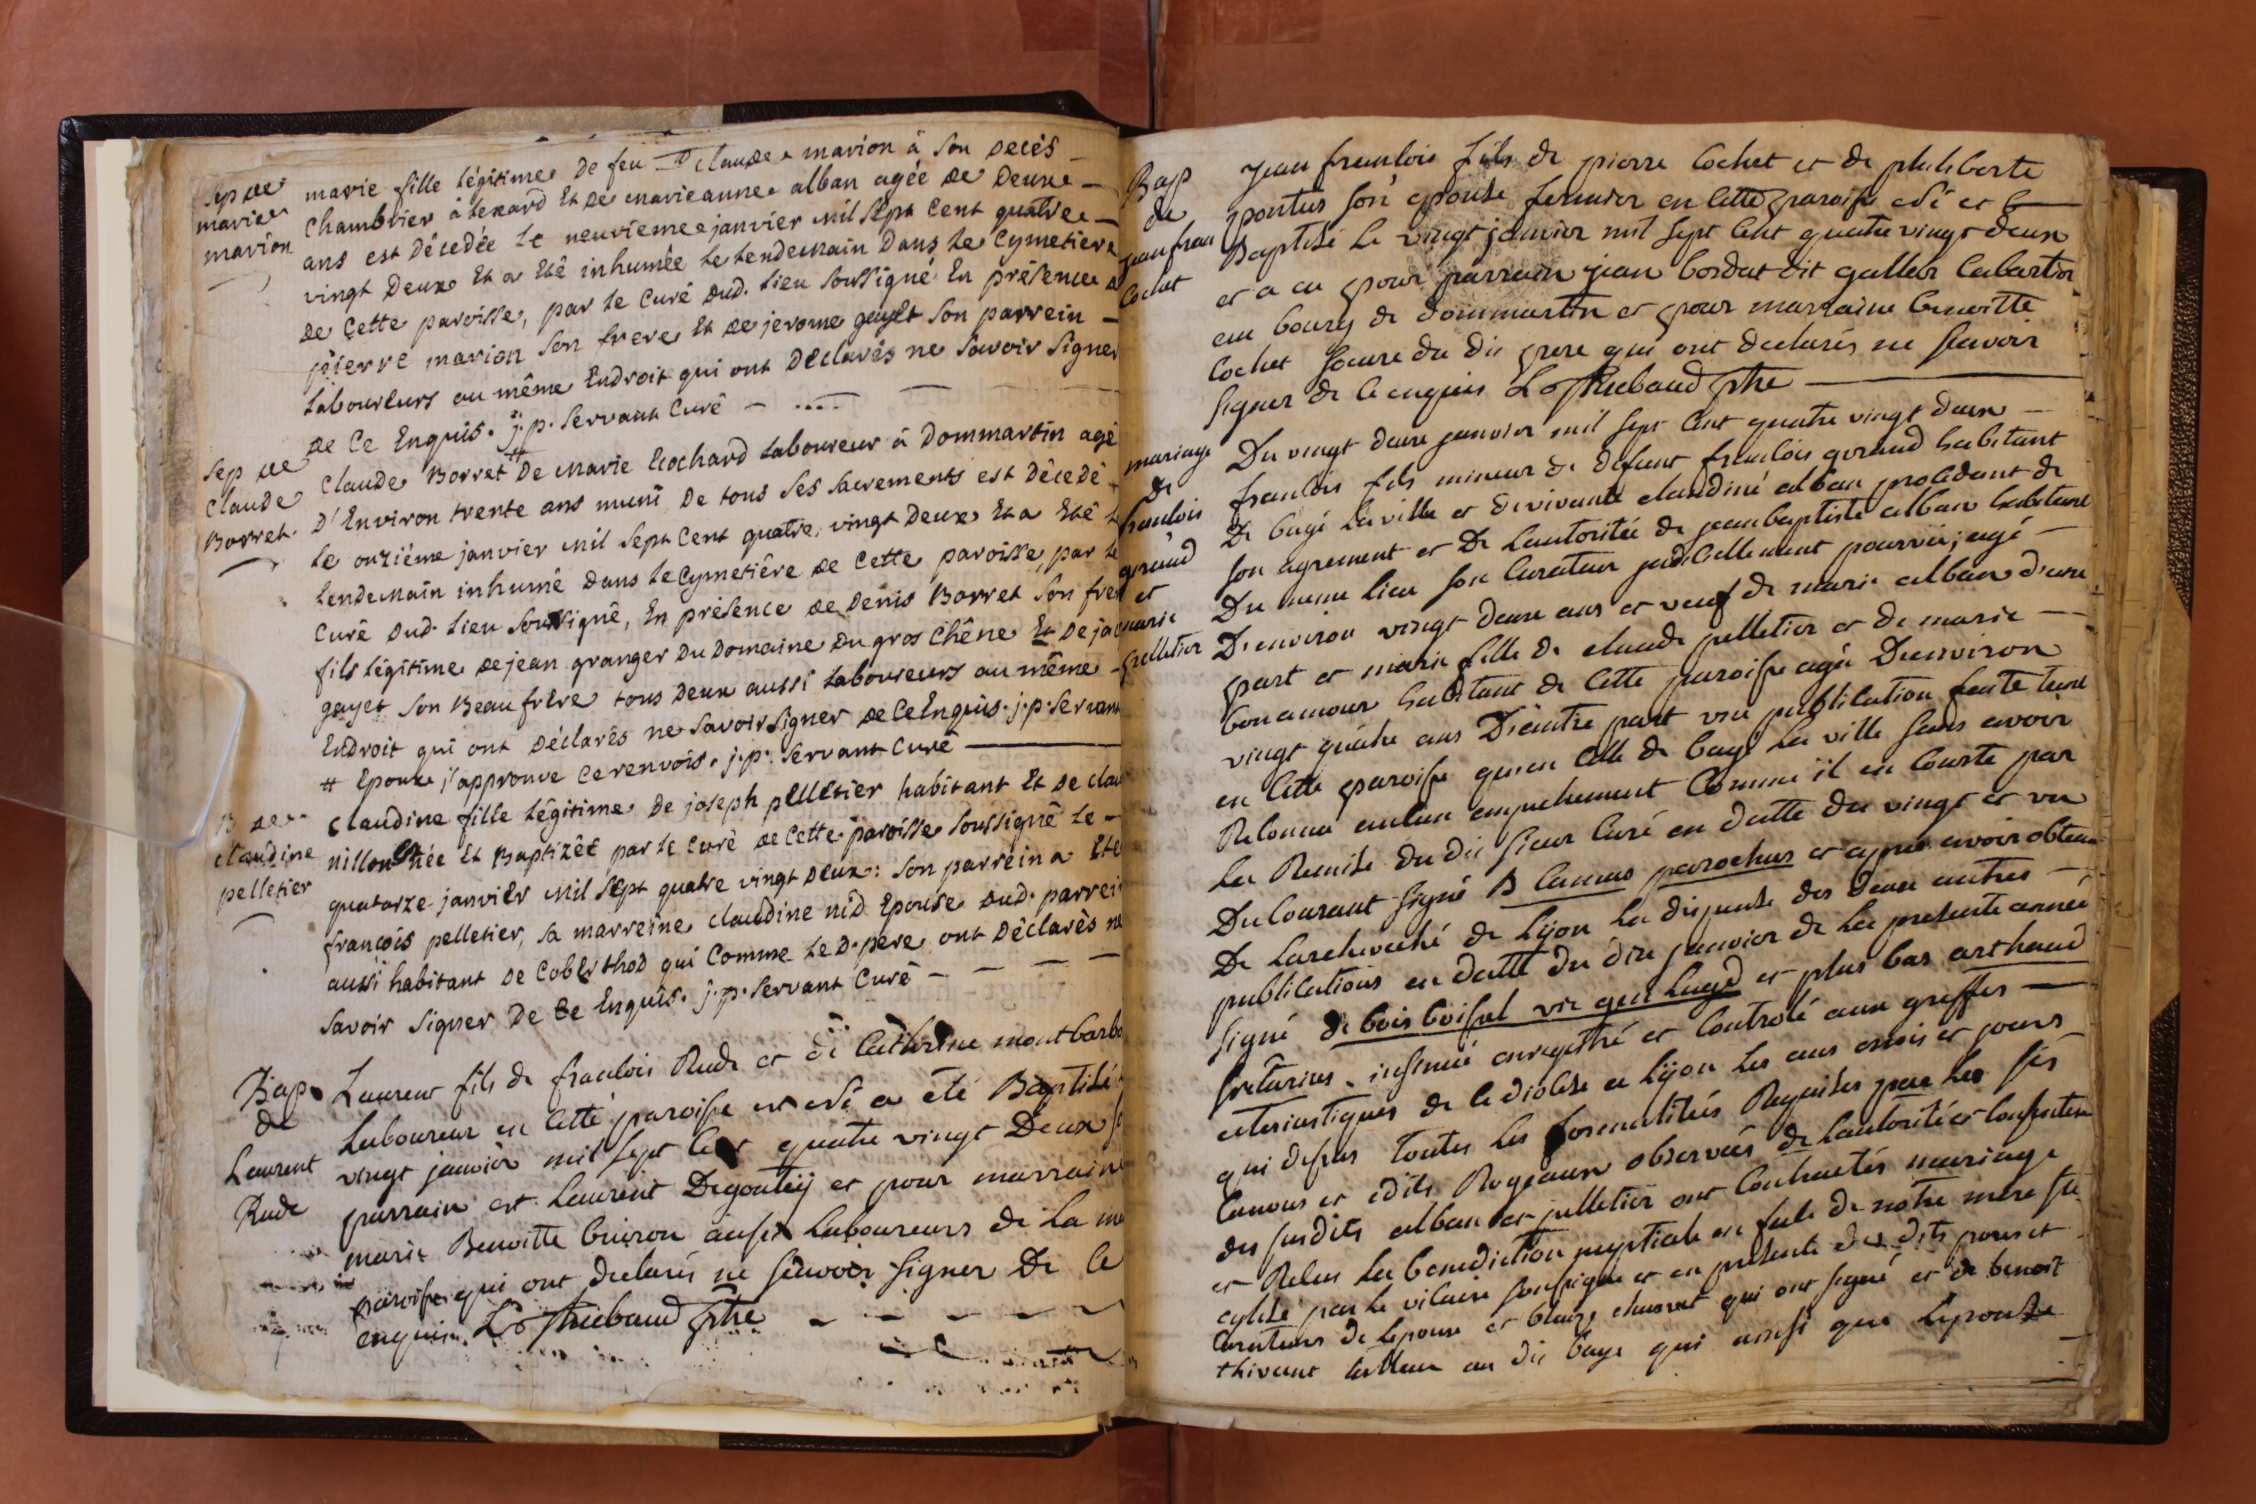 Sep de
marie
marion
marie fille légitime De feu D claude marion à son decès
chambrier à tenard Et de marieanne alban agée de Deux
ans est Décedée le neuvieme janvier mil sept cent quatre
vingt Deux Et a Eté inhumée le lendemain Dans le cymetiere
de cette paroisse, par le curé dud. lieu soussigné En présence de
pierre marion son frere Et de jerome gayet son parrein
laboureurs au même Endroit qui ont Déclarés ne savoir signer
de ce Enquis. j. p. servant curé
Sep de
claude
Borret.
claude Borret # De marie Cochard laboureur à Dommartin agé
D'Environ trente ans muni De tous ses sacrements est Décedé
le onziéme janvier mil sept cent quatre vingt Deux Et a Eté le
lendemain inhumé dans le cymetière de cette paroisse, par le
curé dud. lieu soussigné, En présence de Denis Borret son frere
fils légitime de jean granger du Domaine du gros chêne Et De jac
gayet son Beaufrère tous Deux aussi laboureurs au même
Endroit qui ont Déclarés ne savoir signer de ce Enquis. j. p. servant
# Epoux j'approuve ce renvois. j. p. servant curé
B de
claudine
pelletier
claudine fille légitime De joseph pelletier habitant Et de clau
nillon née Et Baptizée par le curé de cette paroisse soussigné le
quatorze janvier mil sept quatre vingt Deux : son parrein a Eté
françois pelletier, sa marreine claudine nid Epouse dud. parrein
aussi habitant de Coberthod qui Comme le D. pere ont Déclarés ne
savoir signer De Ce Enquis. j. p. servant Curé
Bap
de
Laurent
Rude
Laurent fils de francois Rude et de Catherine montbarbo
Laboureur en cette paroisse est né a été Baptisé
vingt janvier mil sept Cent quatre vingt Deux
parrain est Laurent Degoutey et pour marraine
marie Benoitte buiron aussi Laboureurs de la me
paroisse qui ont declarés ne scavoir signer De Ce
enquis. L. Thiebaud ptre
Bap
de
jean fran
Cochet
Jean francois fils de pierre Cochet et de philiberte
pontus son epouse fermier en cette paroisse est né et
Baptisé le vingt janvier mil sept Cent quatre vingt deux
et a eu pour parrain jean bordat dit gallea Cabartier
au bourg de dommartin et pour marraine benoitte
Cochet soeure du dit pere qui ont declarés ne scavoir
signer de ce enquis L. Thiebaud ptre
mariage
de
francois
geraud
et
marie
pelletier
Du vingt deux janvier mil sept Cent quatre vingt deux
francois fils mineur de defunt francois geraud habitant
De bagé la ville et de vivante claudine alban procedant de
son agrement et De Lautorité de jean baptiste alban habitant
Du meme lieu son Curateur judiciellement pourvu; agé
D'environ vingt deux ans et veuf de marie alban d'une
part et marie fille de claude pelletier et de marie
bonamour habitant de Cette paroisse agée D'environ
vingt quatre ans D'autre part vu publication faite tant
en Cette paroisse qu'en Celle de bagé la ville sans avoir
Reconnu aucun empechement Comme il en Conste par
La Remise du dit sieur Curé en datte du vingt et un
Du Courant signé B Camus parochus et apres avoir obtenu
De Larcheveché de Lyon La dispense des deux autres
publications en datte du dix janvier de La presente année
signé de bois boissel vic gen Lugd et plus bas arthaud
secretarius. insinué enregistré et Controlé aux greffes
ecclesiastiques de ce diocese a Lyon Les ans mois et jours
qui dessus toutes Les formalités Requises par Les sts
Canons et edits Royeaux observées de Lautorité et Consentem
des susdits alban et pelletier ont Contractés mariage
et Recus La benediction nuptiale en face de notre mere ste
eglise par le vicaire soussigné et en presence des dits pours et
Curateurs de Lepoux et blaise chanvet qui ont signé et de benoit
thivent tailleur au dit bage qui ainsi que Lepouse